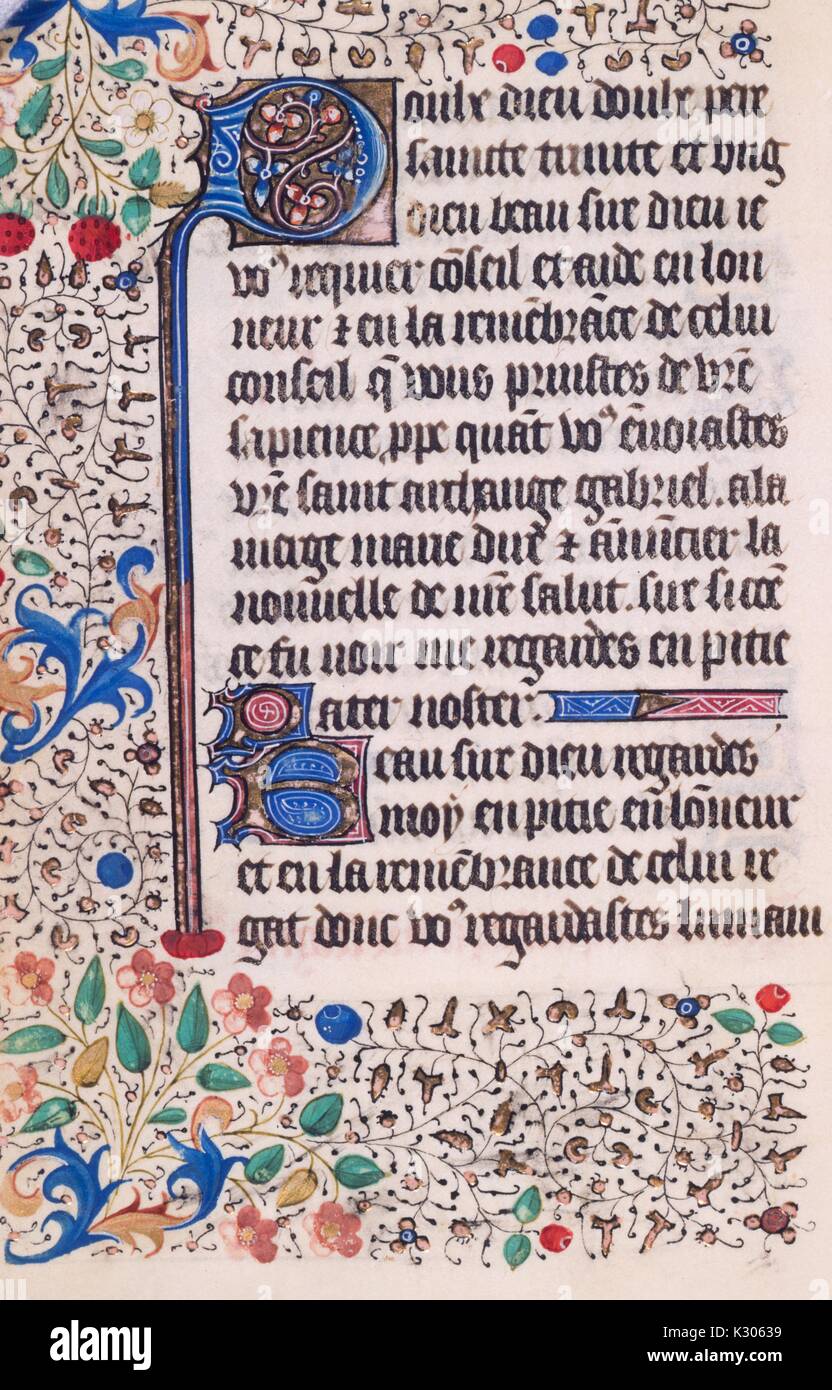 Doulx dieu doulx pere
saincte trinite et ung
dieu beau sire dieu ie
voꝰ requier cōseil et aide en lon
neur ⁊ en la remēbrāce de celui
conseil q̄ vous prinstes de vr̄e
sapience ppe quāt voꝰ ēnoiastes
vr̄e saint archange gabriel. a la
vierge marie dire ⁊ ānūcier la
nouuelle de nr̄e salut. sire sicōe
ce fu voir me regardes en pitie
Pater noster.
Beau sire dieu regardes
moy en pitie en lōneur
et en la remēbrance de celui re
gat donc voꝰ regardastes lumain
alamy stock photo
alamy
Image ID: K30639
www.alamy.com